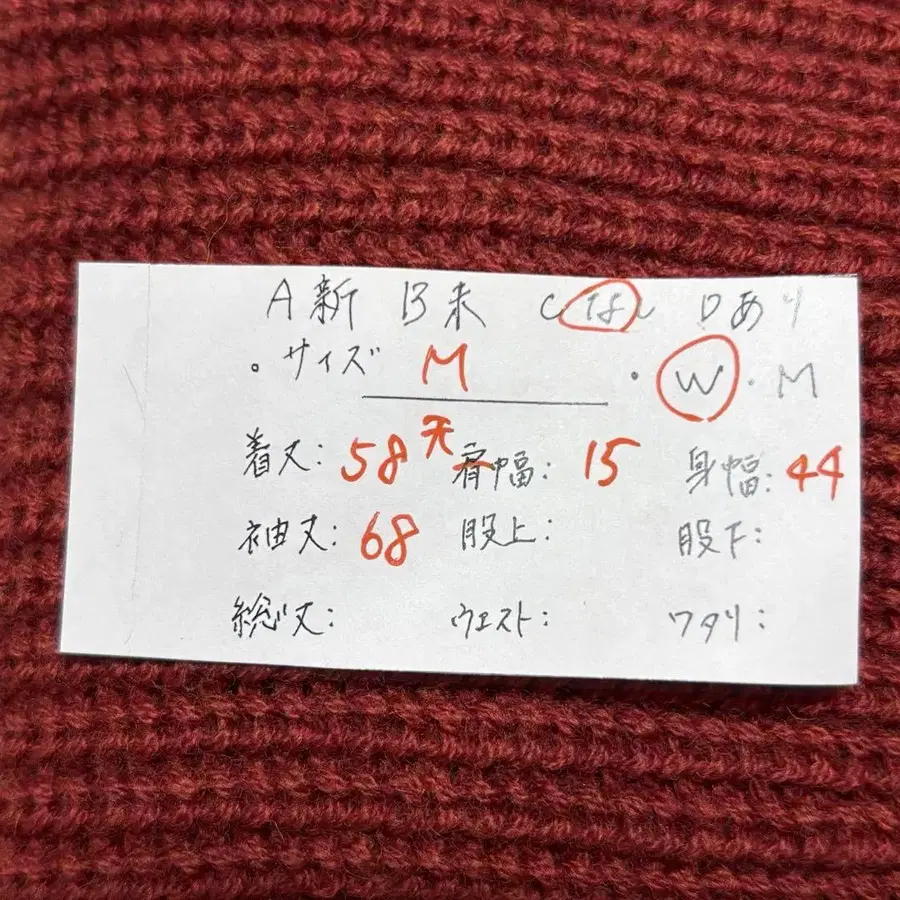 A新 B未 Cなし Dあり
・サイズ M ・W・M
着丈: 58 天 肩幅: 15 身幅: 44
袖丈: 68 股上: 股下:
総丈: ウエスト: ワタリ: